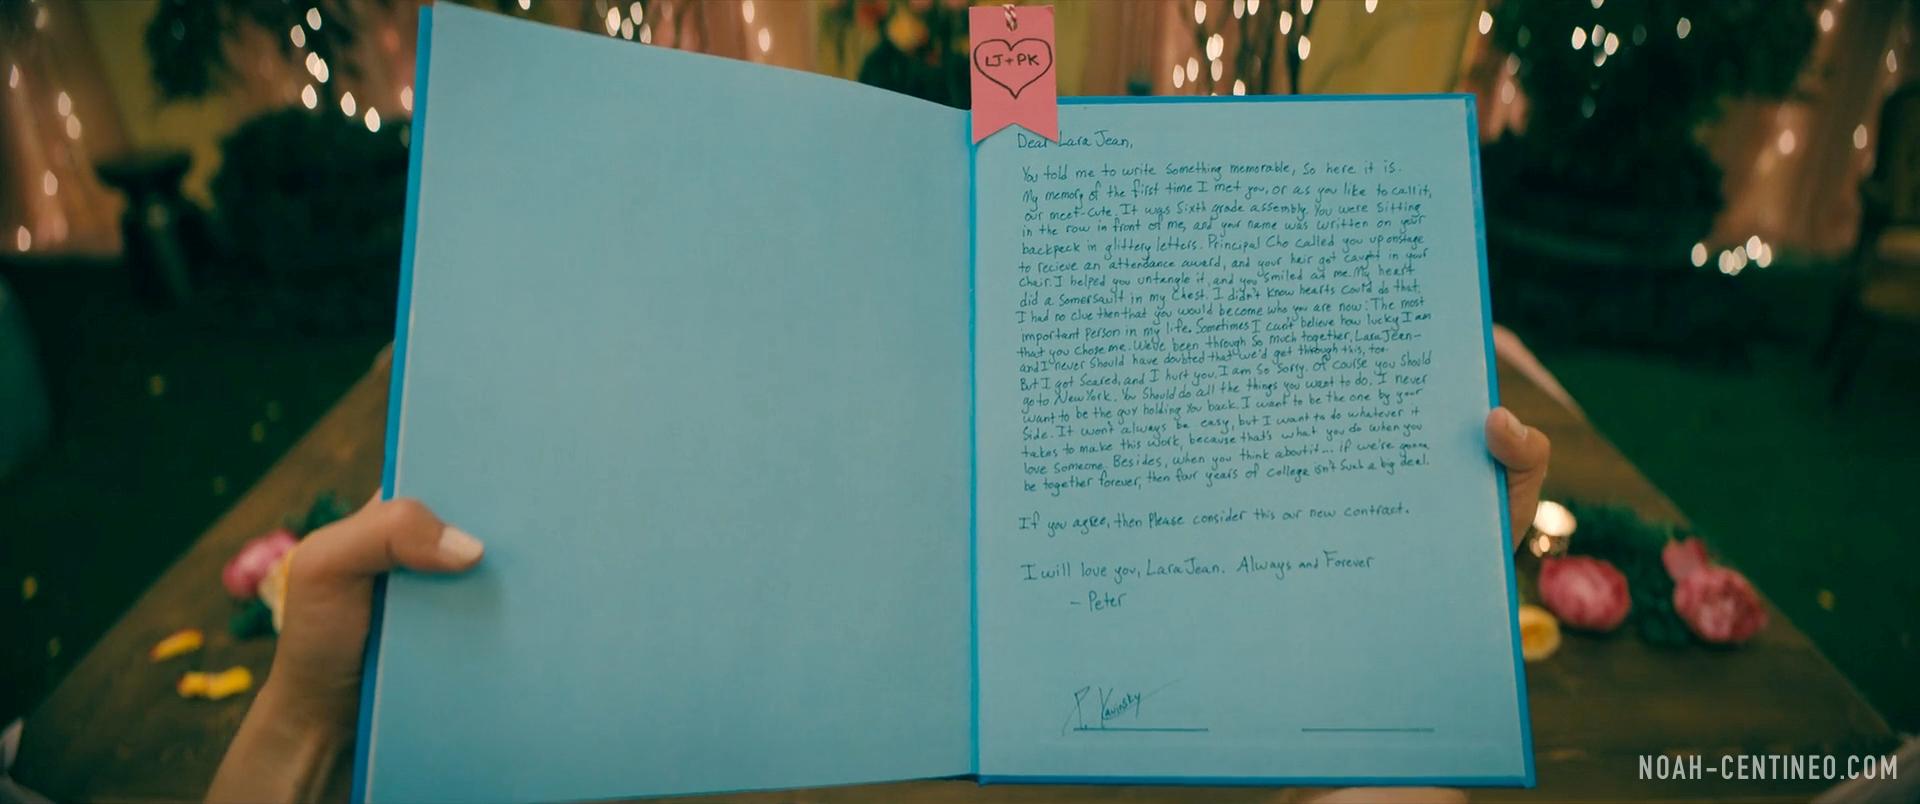 LJ+PK
Dear Lara Jean,
You told me to write something memorable, so here it is.
My memory of the first time I met you, or as you like to call it,
our meet-cute. It was Sixth grade assembly. You were sitting
in the row in front of me, and your name was written on your
backpack in glittery letters. Principal Cho called you up onstage
to recieve an attendance award, and your hair got caught in your
chair. I helped you untangle it, and you smiled at me. My heart
did a somersault in my chest. I didn't know hearts could do that.
I had no clue then that you would become who you are now: The most
important person in my life. Sometimes I can't believe how lucky I am
that you chose me. We've been through so much together, Lara Jean-
and I never should have doubted that we'd get through this, too.
But I got scared, and I hurt you. I am so sorry. Of course you should
go to New York. You should do all the things you want to do. I never
want to be the guy holding you back. I want to be the one by your
side. It won't always be easy, but I want to do whatever it
takes to make this work, because that's what you do when you
love someone. Besides, when you think about it... if we're gonna
be together forever, then four years of college isn't such a big deal.
If you agree, then please consider this our new contract.
I will love you, Lara Jean. Always and Forever
- Peter
P. Kavinsky
NOAH-CENTINEO.COM